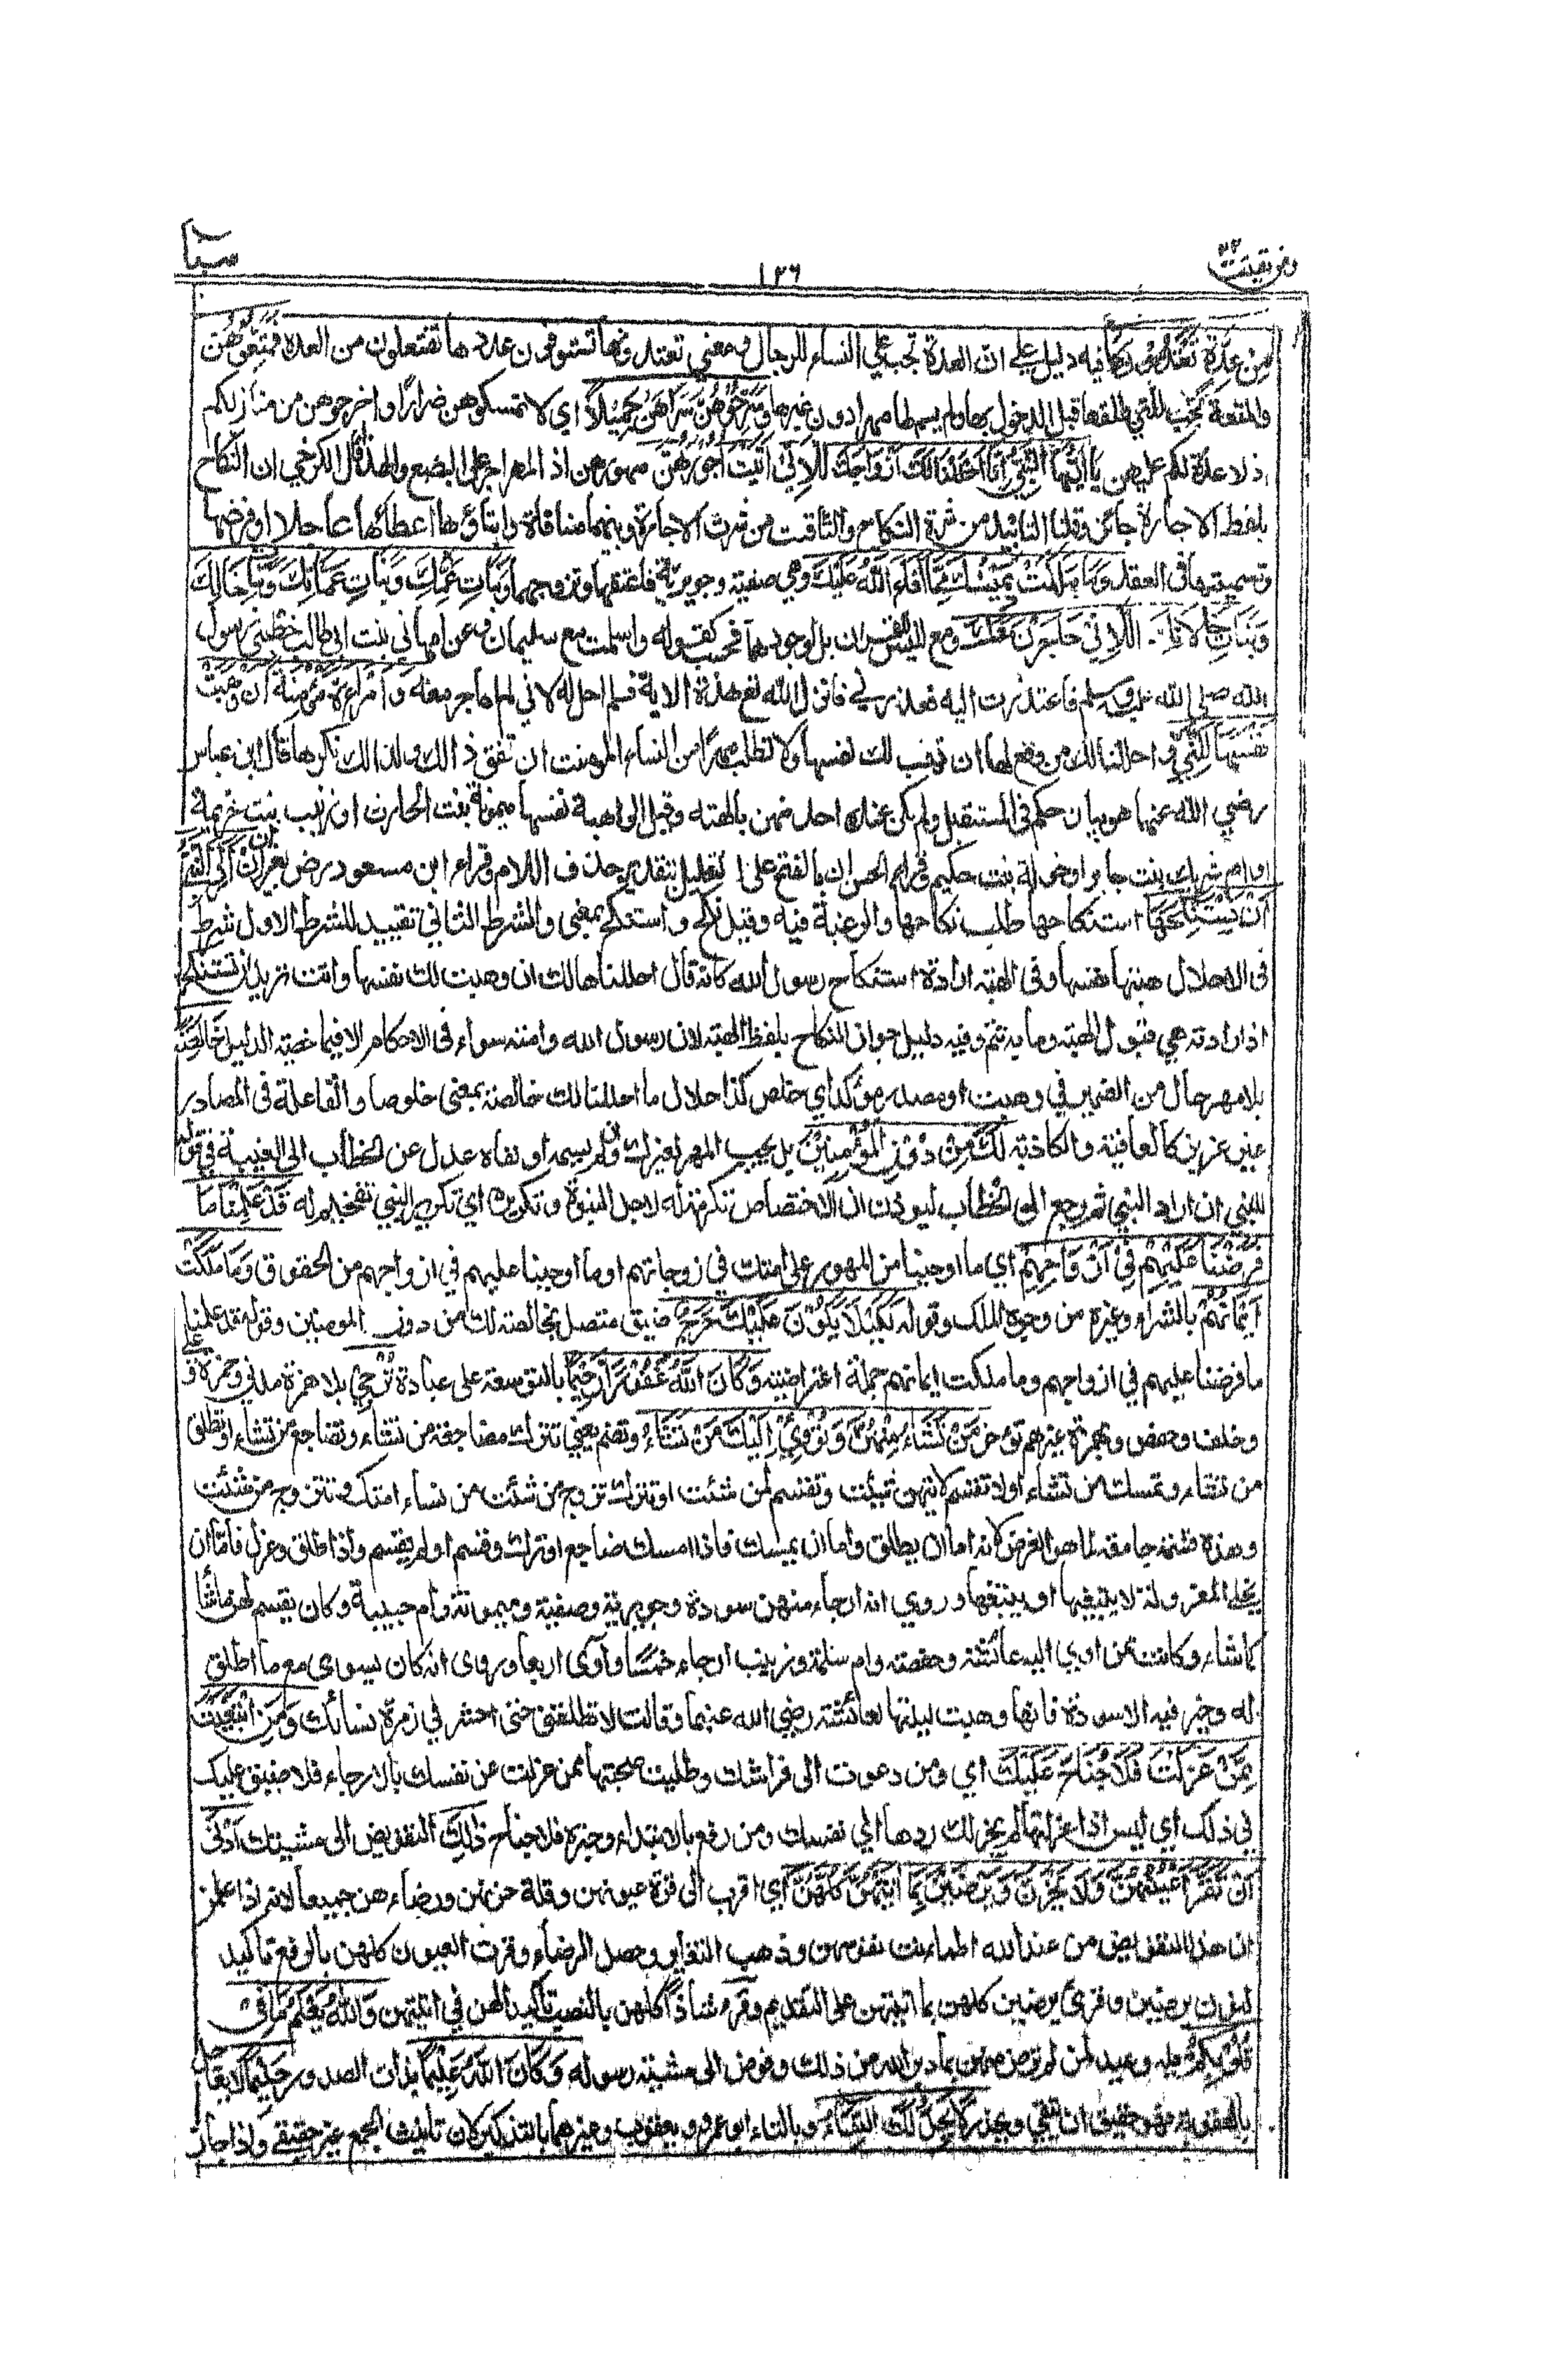 ومن يقنت ٢٢
١٣٦
سبا
مِنْ عِدَّةٍ تَعْتَدُّونَهَا فيه دليل على ان العدة تجب على النساء للرجال ومعنى تعتدونها تستوفون عددها تفتعلون من العدة فَمَتِّعُوهُنَّ
والمتعة تجب للتي طلقها قبل الدخول بها ولم يسم لها مهرا دون غيرها وَسَرِّحُوهُنَّ سَرَاحًا جَمِيْلًا اي لا تمسكوهن ضرارا واخرجوهن من منازلكم
اذ لا عدة لكم عليهن يَا أَيُّهَا النَّبِيُّ إِنَّا أَحْلَلْنَا لَكَ أَزْوَاجَكَ اللَّاتِي آتَيْتَ أُجُوْرَهُنَّ مهورهن اذ المهر اجر على البضع ولهذا قال الكرخي ان النكاح
بلفظ الاجارة جائز وقلنا التابيد من شرط النكاح والتاقيت من شرط الاجارة وبينهما منافاة وايتاؤها اعطاؤها عاجلا او فرضها
وتسميتها في العقد وَمَا مَلَكَتْ يَمِيْنُكَ مِمَّا أَفَاءَ اللَّهُ عَلَيْكَ وهي صفية وجويرية فاعتقها وتزوجهما وَبَنَاتِ عَمِّكَ وَبَنَاتِ عَمَّاتِكَ وَبَنَاتِ خَالِكَ
وَبَنَاتِ خَالَاتِكَ اللَّاتِي هَاجَرْنَ مَعَكَ ومع ليس للقران بل لوجودها فحسب كقوله واسلمت مع سليمان وعن ام هانى بنت ابي طالب خطبني رسول
الله صلى الله عليه وسلم فاعتذرت اليه فعذرني فانزل الله تع هذه الاية فلم احل له لاني لم اهاجر معه وَامْرَأَةً مُّؤْمِنَةً إِنْ وَهَبَتْ
نَفْسَهَا لِلنَّبِيِّ واحللنا لك من وقع لها ان تهب لك نفسها ولا تطلب مهرا من النساء المومنت ان تفق ذالك ولذالك نكرها قال ابن عباس
رضي الله عنهما هو بيان حكم في المستقبل ولم يكن عنده احد منهن بالهبة وقيل الواهبة نفسها ميمونة بنت الحارث او زينب بنت خزيمة
او ام شريك بنت جابر او خولة بنت حكيم وقراء الحسن ان بالفتح على التعليل بتقدير حذف اللام وقراء ابن مسعود رض بغير ان إِنْ أَرَادَ النَّبِيُّ
أَنْ يَّسْتَنْكِحَهَا استنكاحها طلب نكاحها والرغبة فيه وقيل نكح واستنكح بمعنى والشرط الثاني تقييد للشرط الاول شرط
في الاحلال هبتها نفسها وفي الهبة ارادة استنكاح رسول الله كانه قال احللناها لك ان وهبت لك نفسها وانت تريد ان تستنكحها
اذ ارادته هي قبول الهبة وما به تتم وفيه دليل جواز النكاح بلفظ الهبة لان رسول الله وامته سواء في الاحكام الا فيما خصه الدليل خَالِصَةً
بلا مهر حال من الضمير في وهبت او مصدر مؤكد اي خلص كذا حلال ما احللنا لك خالصة بمعنى خلوصا والفاعلة في المصادر
غير عزيز كالعافية والكاذبة لَكَ مِنْ دُوْنِ الْمُؤْمِنِيْنَ بل يجب المهر لغيرك وان لم يسمه او نفاه عدل عن الخطاب الى الغيبة في قوله
للنبي ان اراد النبي ثم رجع الى الخطاب ليوذن ان الاختصاص تكرمة له لاجل النبوة وتكريره اي تكرير النبي تفخيم له قَدْ عَلِمْنَا مَا
فَرَضْنَا عَلَيْهِمْ فِيْ أَزْوَاجِهِمْ اي ما اوجبنا من المهور على امتك في زوجاتهم او ما اوجبنا عليهم في ازواجهم من الحقوق وَمَا مَلَكَتْ
أَيْمَانُهُمْ بالشراء وغيره من وجوه الملك وقوله لِكَيْلَا يَكُوْنَ عَلَيْكَ حَرَجٌ ضيق متصل بخالصة لك من دون المومنين وقوله قد علمنا
ما فرضنا عليهم في ازواجهم وما ملكت ايمانهم جملة اعتراضية وَكَانَ اللَّهُ غَفُوْرًا رَّحِيْمًا بالتوسعة على عباده تُرْجِيْ بلا همزة مدني وحمزة وعلي
وخلف وحفص وبهمزة غيرهم تؤخر مَنْ تَشَاءُ مِنْهُنَّ وَتُؤْوِيْ إِلَيْكَ مَنْ تَشَاءُ وتضم يعني تترك مضاجعة من تشاء وتضاجع من تشاء او تطلق
من تشاء وتمسك من تشاء او لا تقسم لايتهن شئت وتقسم لمن شئت او تترك تزوج من شئت من نساء امتك وتتزوج من شئت
وهذه قسمة جامعة لما هو الغرض لانه اما ان يطلق واما ان يمسك فاذا امسك ضاجع او ترك وقسم او لم يقسم واذا طلق وعزل فاما ان
يخلي المعزولة لا يبتغيها او يبتغيها وروي انه ارجاء منهن سودة وجويرية وصفية وميمونة وام حبيبة وكان يقسم لهن ما شاء
كما شاء وكانت ممن اوي اليه عائشة وحفصة وام سلمة وزينب ارجاء خمسا وآوى اربعا وروى انه كان يسوي مع ما اطلق
له وخير فيه الا سودة فانها وهبت ليلتها لعائشة رضي الله عنهما وقالت لا تطلقني حتى احشر في زمرة نسائك وَمَنِ ابْتَغَيْتَ
مِمَّنْ عَزَلْتَ فَلَا جُنَاحَ عَلَيْكَ اي ومن دعوت الى فراشك وطلبت صحبتها ممن عزلت عن نفسك بالارجاء فلا ضيق عليك
في ذلك اي ليس اذا عزلتها لم يجز لك ردها الى نفسك ومن رفع بالابتداء وخبره فلا جناح ذٰلِكَ التفويض الى مشيتك أَدْنٰى
أَنْ تَقَرَّ أَعْيُنُهُنَّ وَلَا يَحْزَنَّ وَيَرْضَيْنَ بِمَا آتَيْتَهُنَّ كُلُّهُنَّ اي اقرب الى قرة عيونهن وقلة حزنهن ورضاءهن جميعا لانه اذا علمن
ان هذا التفويض من عند الله اطماءنت نفوسهن وذهب التغاير وحصل الرضاء وقرت العيون كلهن بالرفع تاكيد
لنون يرضين وقرئ يرضين كلهن بما اتيتهن على التقديم وقرء شاذا كلهن بالنصب تاكيدا لهن في اتيتهن وَاللَّهُ يَعْلَمُ مَا فِيْ
قُلُوْبِكُمْ فيه وعيد لمن لم ترض منهن بما دبر الله من ذلك وفوض الى مشية رسوله وَكَانَ اللَّهُ عَلِيْمًا بذات الصدور حَلِيْمًا لا يعاجل
بالعقوبة فهو حقيق ان يتقي ويحذر لَا يَحِلُّ لَكَ النِّسَاءُ وبالتاء ابو عمرو ويعقوب وغيرهما بالتذكير لان تانيث الجمع غير حقيقي واذا جاز